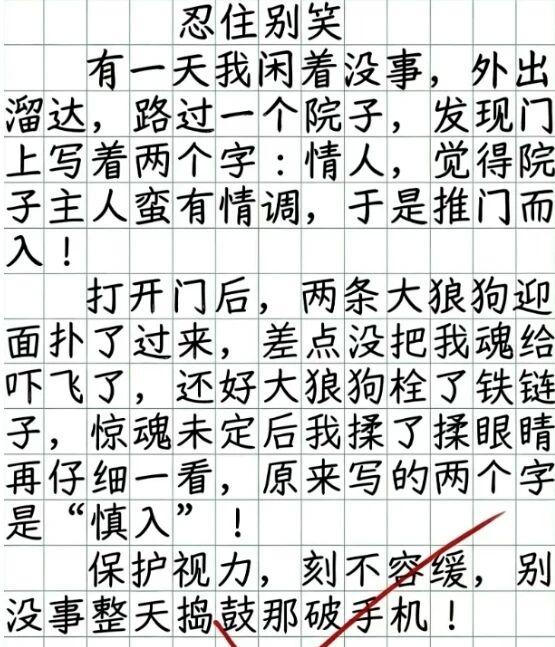 忍住别笑
有一天我闲着没事，外出
溜达，路过一个院子，发现门
上写着两个字：情人，觉得院
子主人蛮有情调，于是推门而
入！
打开门后，两条大狼狗迎
面扑了过来，差点没把我魂给
吓飞了，还好大狼狗栓了铁链
子，惊魂未定后我揉了揉眼睛
再仔细一看，原来写的两个字
是“慎入”！
保护视力，刻不容缓，别
没事整天捣鼓那破手机！